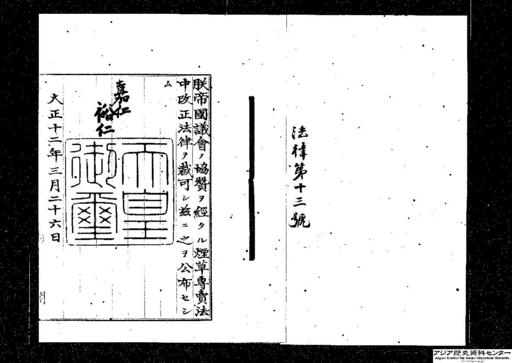 法律第十三號
朕帝國議會ノ協贊ヲ經タル煙草專賣法
中改正法律ヲ裁可シ玆ニ之ヲ公布セシ
ム
嘉仁
裕仁
天皇
御璽
大正十二年三月二十六日
アジア歴史資料センター
Japan Center for Asian Historical Records